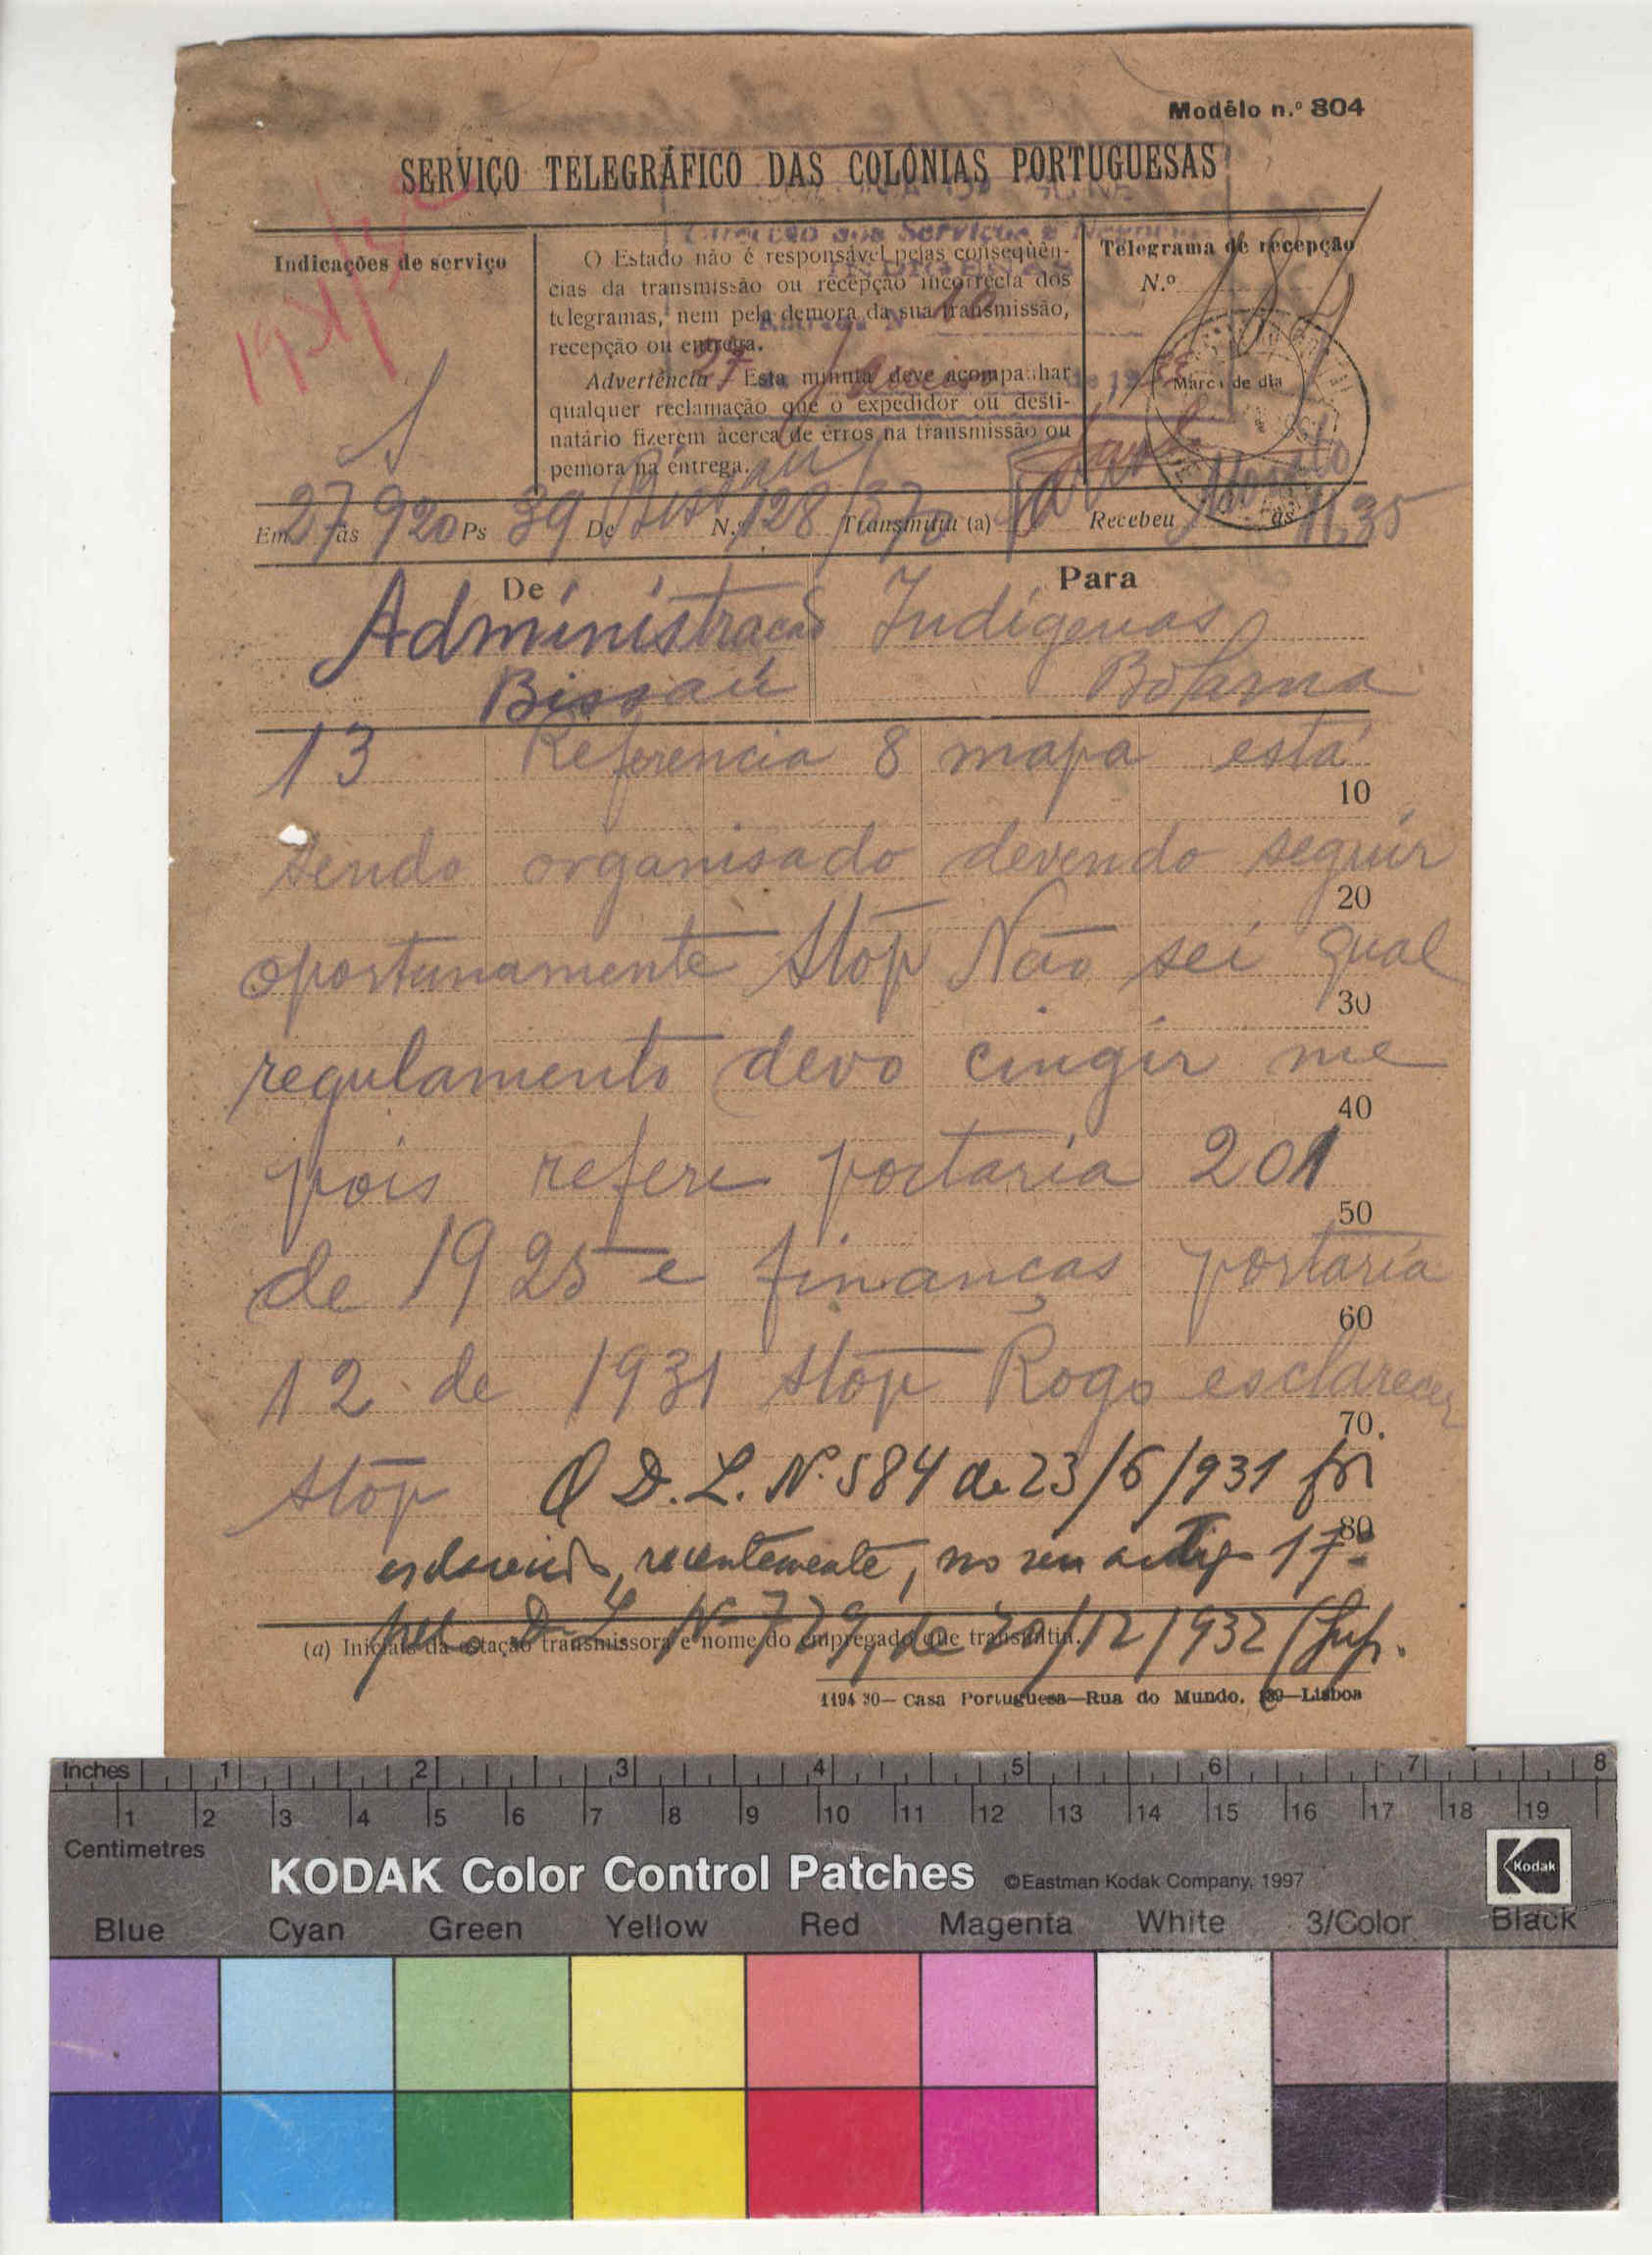 Modêlo n.º 804
SERVIÇO TELEGRÁFICO DAS COLÓNIAS PORTUGUESAS
Direcção dos Serviços e Negócios
INDIGENAS
Indicações de serviço
O Estado não é responsável pelas conseqüên-
cias da transmissão ou recepção incorrecta dos
telegramas, nem pela demora da sua transmissão,
recepção ou entrega.
Advertência — Esta minuta deve acompanhar
qualquer reclamação que o expedidor ou desti-
natário fizerem àcerca de erros na transmissão ou
pemora na entrega.
Telegrama de recepção
N.º
Marca de dia
27
Em 27 às 920 Ps 39 De Bissau N.º 128/370 Transmitiu (a) Recebeu às 11,35
De
Para
Administração Indígenas
Bissau Bolama
13 Referencia 8 mapa está
10
sendo organisado devendo seguir
20
oportunamente stop Não sei qual
30
regulamento devo cingir me
40
pois refere portaria 201
50
de 1925 e finanças portaria
60
12 de 1931 stop Rogo esclarecer
70
stop O D. L. Nº 584 de 23/6/931 foi
80
esclarecido, recentemente, no seu artigo 17º
pelo D. L. Nº 729, de 20/12/932 (Sup.
(a) Iniciais da estação transmissora e nome do empregado que transmitiu.
1194 30— Casa Portuguesa—Rua do Mundo, —Lisboa
Inches 1 2 3 4 5 6 7 8
1 2 3 4 5 6 7 8 9 10 11 12 13 14 15 16 17 18 19
Centimetres
KODAK Color Control Patches ©Eastman Kodak Company, 1997 Kodak
Blue Cyan Green Yellow Red Magenta White 3/Color Black